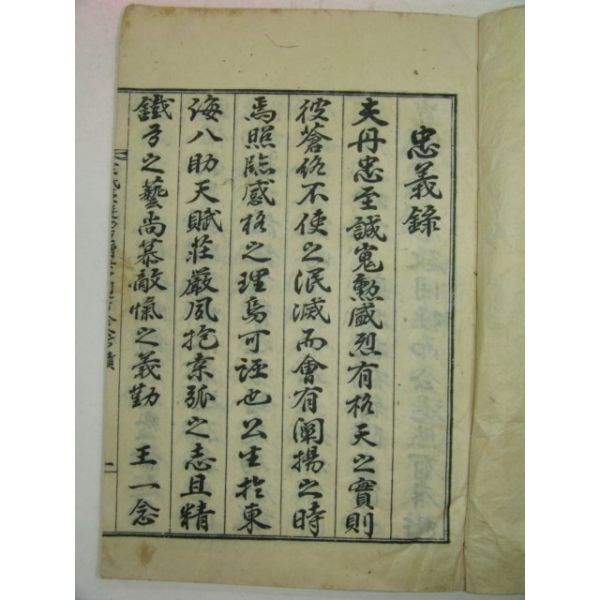 忠義錄
夫丹忠至誠嵬勳盛烈有格天之實則
彼蒼終不使之泯滅而會有闡揚之時
焉照臨感格之理焉可誣也公生於東
海八助天賦莊嚴夙抱桑弧之志且精
鐵弓之藝尚慕敵愾之義勤 王一念